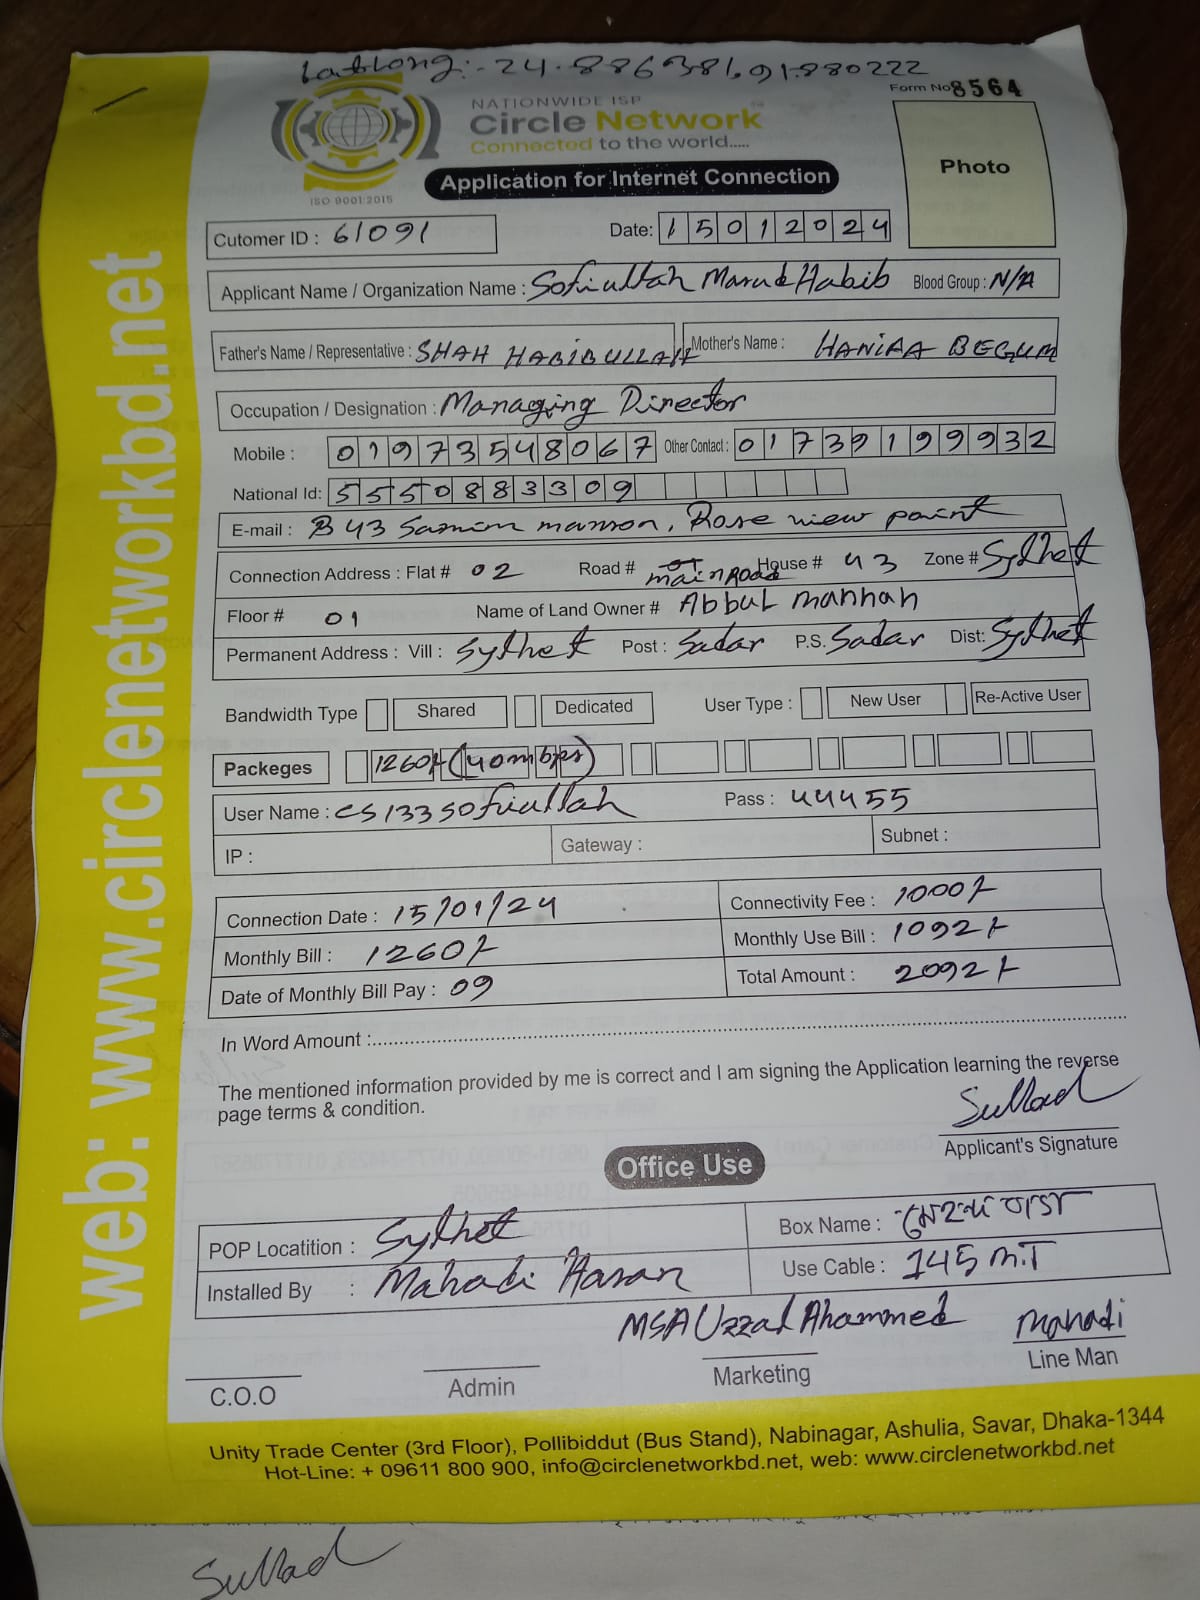 LatLong:- 24.886381, 91.880222
Form No 8564
NATIONWIDE ISP
Circle Network
Connected to the world.....
ISO 9001:2015
Application for Internet Connection
Photo
Cutomer ID : 61091
Date: 15012024
Applicant Name / Organization Name : Sofiullah Maruf Habib Blood Group : N/A
Father's Name / Representative : SHAH HABIBULLAH Mother's Name : HANIFA BEGUM
Occupation / Designation : Managing Director
Mobile : 01973548067 Other Contact : 01739199932
National Id: 5550883309
E-mail : B 43 manson, Rose view point
Connection Address : Flat # 02 Road # main Road House # 43 Zone # Sylhet
Floor # 01 Name of Land Owner # Abbul mannan
Permanent Address : Vill : Sylhet Post : Sadar P.S. Sadar Dist: Sylhet
Bandwidth Type Shared Dedicated User Type : New User Re-Active User
Packeges 1260/- (40mbps)
User Name : cs133sofiullah Pass : 44455
IP : Gateway : Subnet :
Connection Date : 15/01/24 Connectivity Fee : 1000/-
Monthly Bill : 1260/- Monthly Use Bill : 1092/-
Date of Monthly Bill Pay : 09 Total Amount : 2092/-
In Word Amount :
The mentioned information provided by me is correct and I am signing the Application learning the reverse
page terms & condition.
Applicant's Signature
Office Use
POP Locatition : Sylhet Box Name :
Installed By : Mahadi Hasan Use Cable : 145 M.T
MSA Uzzal Ahammed Mahadi
C.O.O Admin Marketing Line Man
Unity Trade Center (3rd Floor), Pollibiddut (Bus Stand), Nabinagar, Ashulia, Savar, Dhaka-1344
Hot-Line: + 09611 800 900, info@circlenetworkbd.net, web: www.circlenetworkbd.net
web: www.circlenetworkbd.net